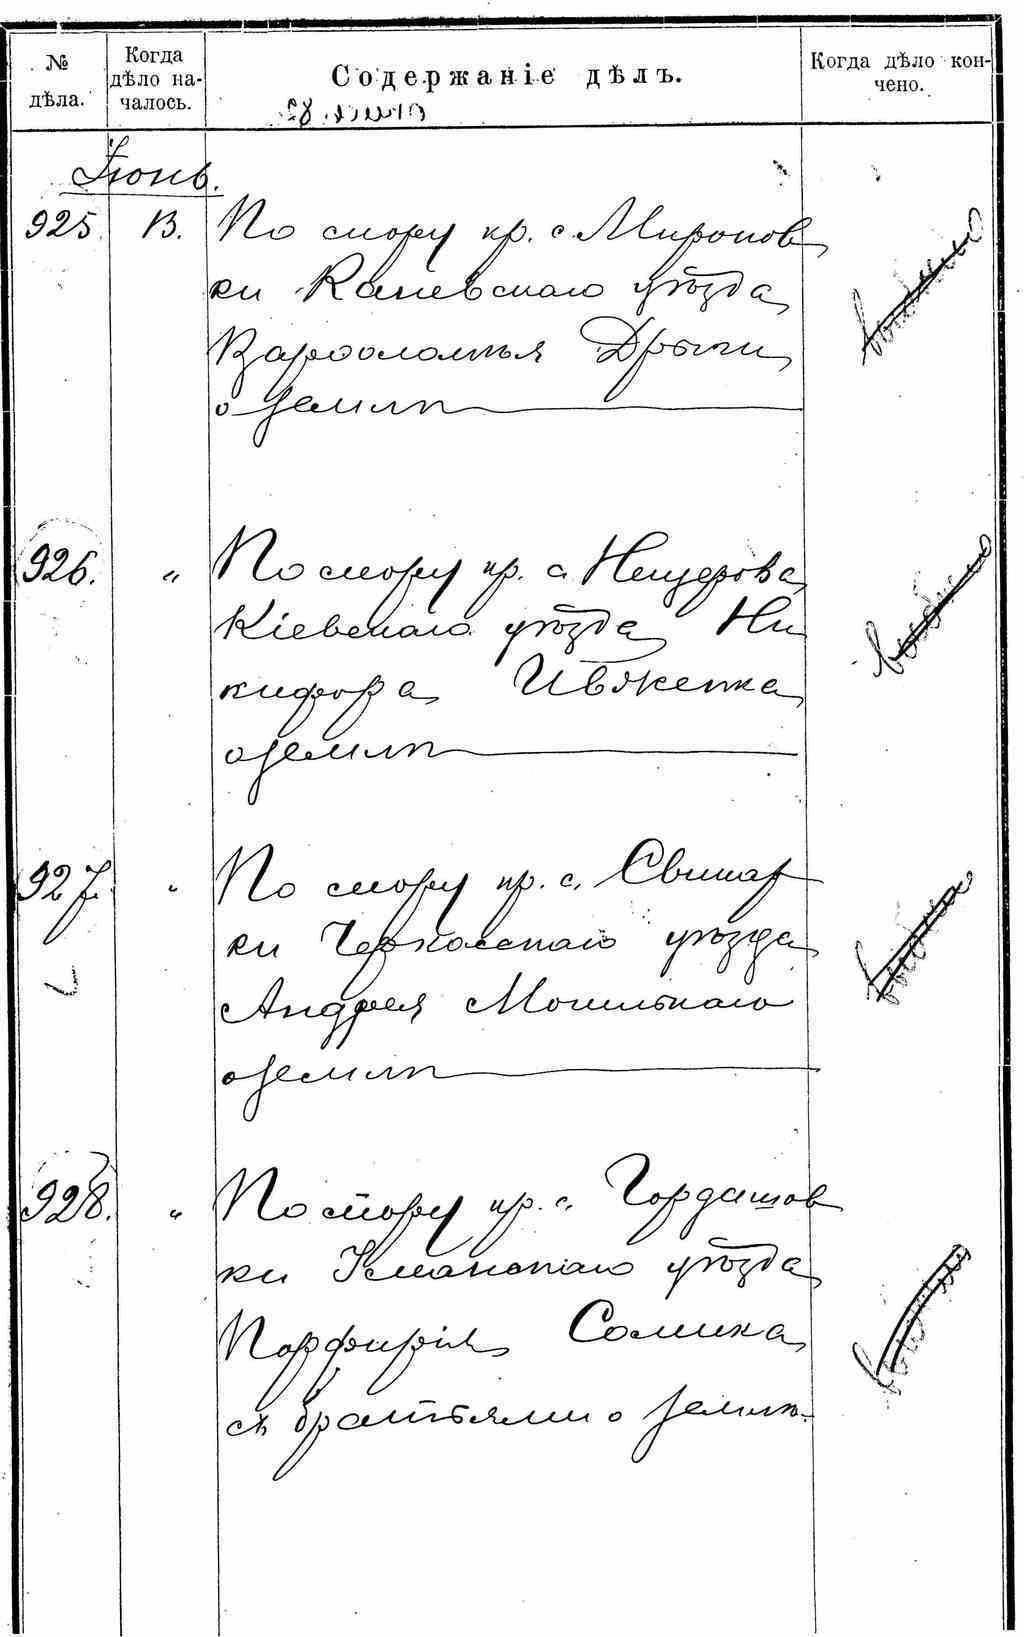 № дѣла.
Когда дѣло началось.
Содержаніе дѣлъ.
Когда дѣло кончено.
Іюнь.
925. 13. По спору кр. с. Миронов
ки Каневскаго уѣзда
Варфоломѣя Дрыги
о землѣ
926. " По спору кр. с. Нещерова
Кіевскаго уѣзда Ни
кифора Ивженка
о землѣ
927. " По спору кр. с. Свинар
ки Черкасскаго уѣзда
Андрея Могильнаго
о землѣ
928. " По спору кр. с. Гордашов
ки Уманскаго уѣзда
Порфирія Сомика
съ братьями о землѣ.